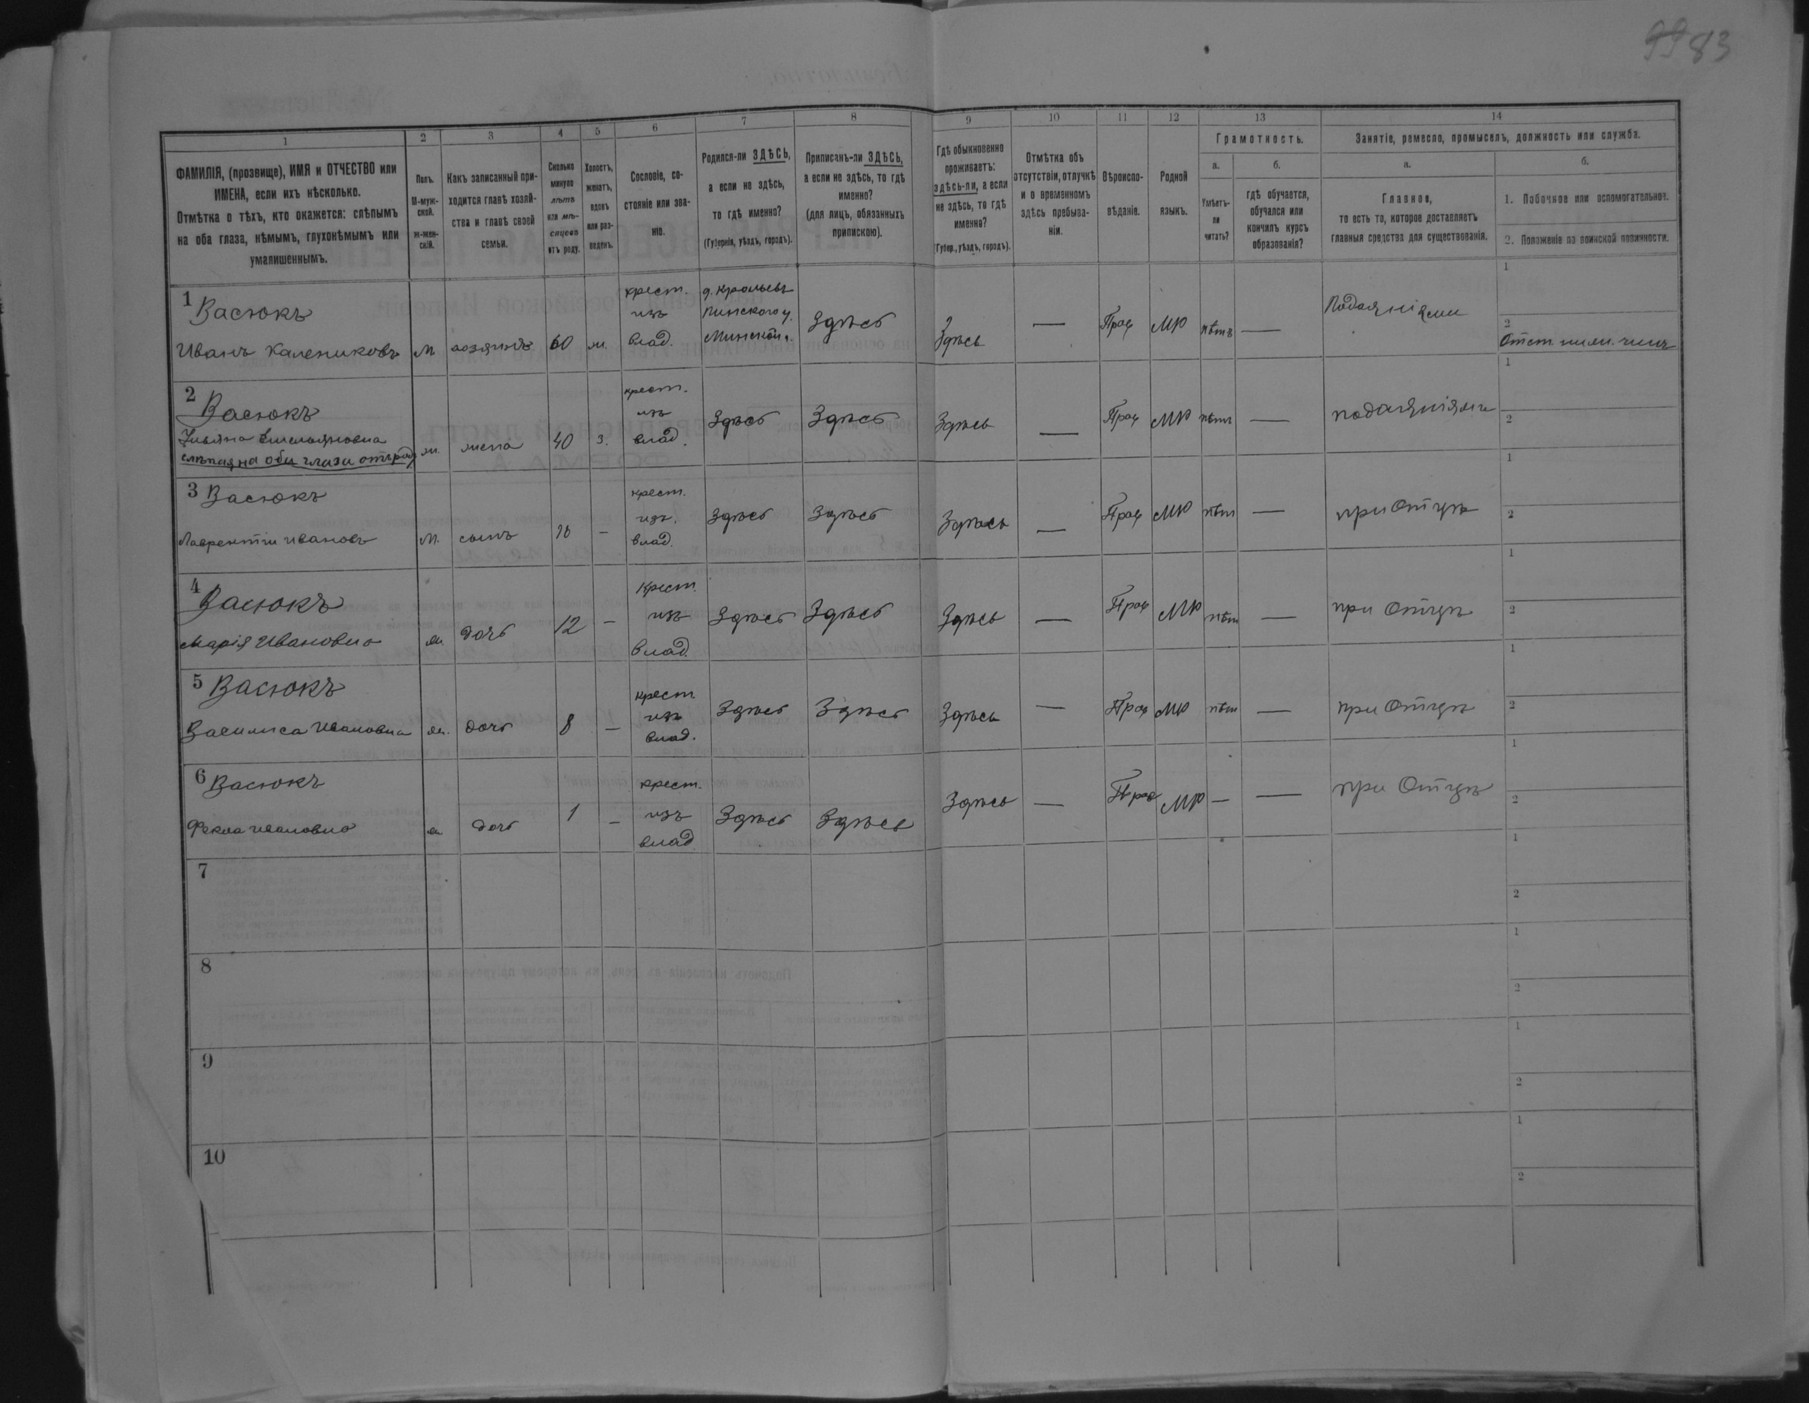 99 83
1 2 3 4 5 6 7 8 9 10 11 12 13 14
ФАМИЛІЯ, (прозвище), ИМЯ и ОТЧЕСТВО или
ИМЕНА, если ихъ нѣсколько.
Отмѣтка о тѣхъ, кто окажется: слѣпымъ
на оба глаза, нѣмымъ, глухонѣмымъ или
умалишеннымъ.
Полъ.
М-муж-
ской.
ж-жен-
скій.
Какъ записанный при-
ходится главѣ хозяй-
ства и главѣ своей
семьи.
Сколько
минуло
лѣтъ
или мѣ-
сяцевъ
отъ роду.
Холостъ,
женатъ,
вдовъ
или раз-
веденъ.
Сословіе, со-
стояніе или зва-
ніе.
Родился-ли ЗДѢСЬ,
а если не здѣсь,
то гдѣ именно?
(Губернія, уѣздъ, городъ).
Приписанъ-ли ЗДѢСЬ,
а если не здѣсь, то гдѣ
именно?
(для лицъ, обязанныхъ
припискою).
Гдѣ обыкновенно
проживаетъ:
здѣсь-ли, а если
не здѣсь, то гдѣ
именно?
(Губер., уѣздъ, городъ).
Отмѣтка объ
отсутствіи, отлучкѣ
и о временномъ
здѣсь пребыва-
ніи.
Вѣроиспо-
вѣданіе.
Родной
языкъ.
Грамотность.
а.
Умѣетъ-
ли
читать?
б.
гдѣ обучается,
обучался или
кончилъ курсъ
образованія?
Занятіе, ремесло, промыселъ, должность или служба.
а.
Главное,
то есть то, которое доставляетъ
главныя средства для существованія.
б.
1. Побочное или вспомогательное.
2. Положеніе по воинской повинности.
1 Васюкъ
Иванъ Калениковъ
м хозяинъ 60 ж.
крест.
изъ
влад.
д.
Пинского у.
Минской г.
Здѣсь
Здѣсь — Прав МР нѣтъ —
Подаяніями
1
2
Отст. чинъ
2 Васюкъ
Ульяна Емельяновна
слѣпая на оба глаза отъ род
ж. жена 40 з.
крест.
изъ
влад.
Здѣсь Здѣсь Здѣсь — Прав МР нѣтъ — подаяніями
1
2
3 Васюкъ
Лаврентій Ивановъ
м. сынъ —
крест.
изъ.
влад.
Здѣсь Здѣсь Здѣсь — Прав МР нѣтъ — при Отцѣ
1
2
4 Васюкъ
Марія Ивановна
ж. дочь 12 —
крест.
изъ
влад.
Здѣсь Здѣсь Здѣсь — Прав МР нѣтъ — при Отцѣ
1
2
5 Васюкъ
Василиса Ивановна
ж. дочь 8 —
крест
изъ
влад.
Здѣсь Здѣсь Здѣсь — Прав МР нѣтъ — при Отцѣ
1
2
6 Васюкъ
Фекла Ивановна
ж дочь 1 —
крест.
изъ
влад
Здѣсь Здѣсь Здѣсь — Прав МР — — при Отцѣ
1
2
7
1
2
8
1
2
9
1
2
10
1
2